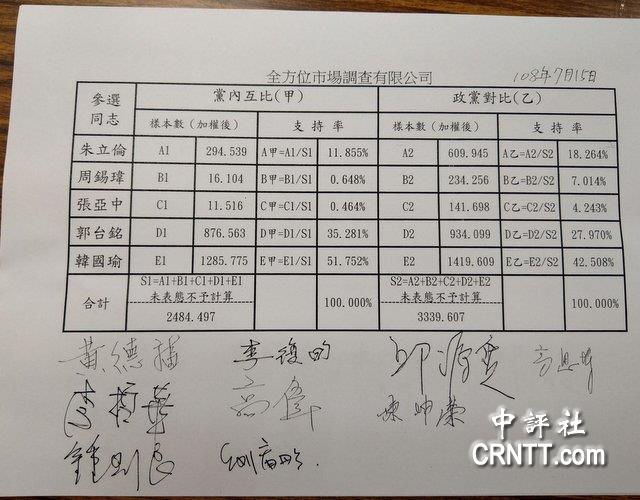 全方位市場調查有限公司 108年7月15日
參選同志 黨內互比(甲) 政黨對比(乙)
樣本數（加權後） 支 持 率 樣本數（加權後） 支 持 率
朱立倫 A1 294.539 A甲=A1/S1 11.855% A2 609.945 A乙=A2/S2 18.264%
周錫瑋 B1 16.104 B甲=B1/S1 0.648% B2 234.256 B乙=B2/S2 7.014%
張亞中 C1 11.516 C甲=C1/S1 0.464% C2 141.698 C乙=C2/S2 4.243%
郭台銘 D1 876.563 D甲=D1/S1 35.281% D2 934.099 D乙=D2/S2 27.970%
韓國瑜 E1 1285.775 E甲=E1/S1 51.752% E2 1419.609 E乙=E2/S2 42.508%
S1=A1+B1+C1+D1+E1 S2=A2+B2+C2+D2+E2
合計 未表態不予計算 100.000% 未表態不予計算 100.000%
2484.497 3339.607
黃德
李哲華 陳坤榮
中評社
CRNTT.com